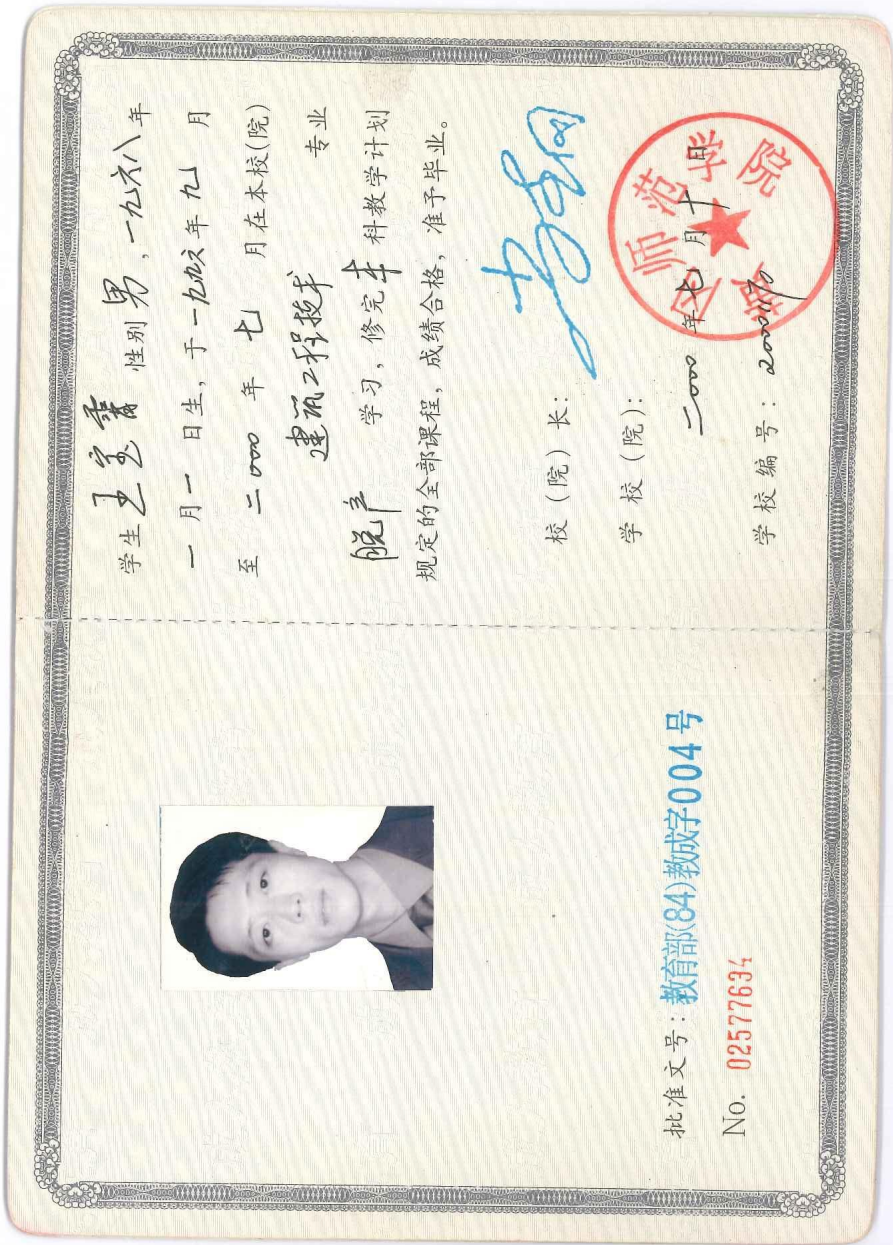 学生王宝香 性别男,一九六八年
一月一日生,于一九九六年九月
至二〇〇〇年七月在本校(院)
建筑工程技术 专业
脱产 学习,修完本科教学计划
规定的全部课程,成绩合格,准予毕业。
校(院)长:
学校(院):
师范学院
二〇〇〇年七月十日
学校编号:
批准文号:教育部(84)教成字004号
No. 02577634